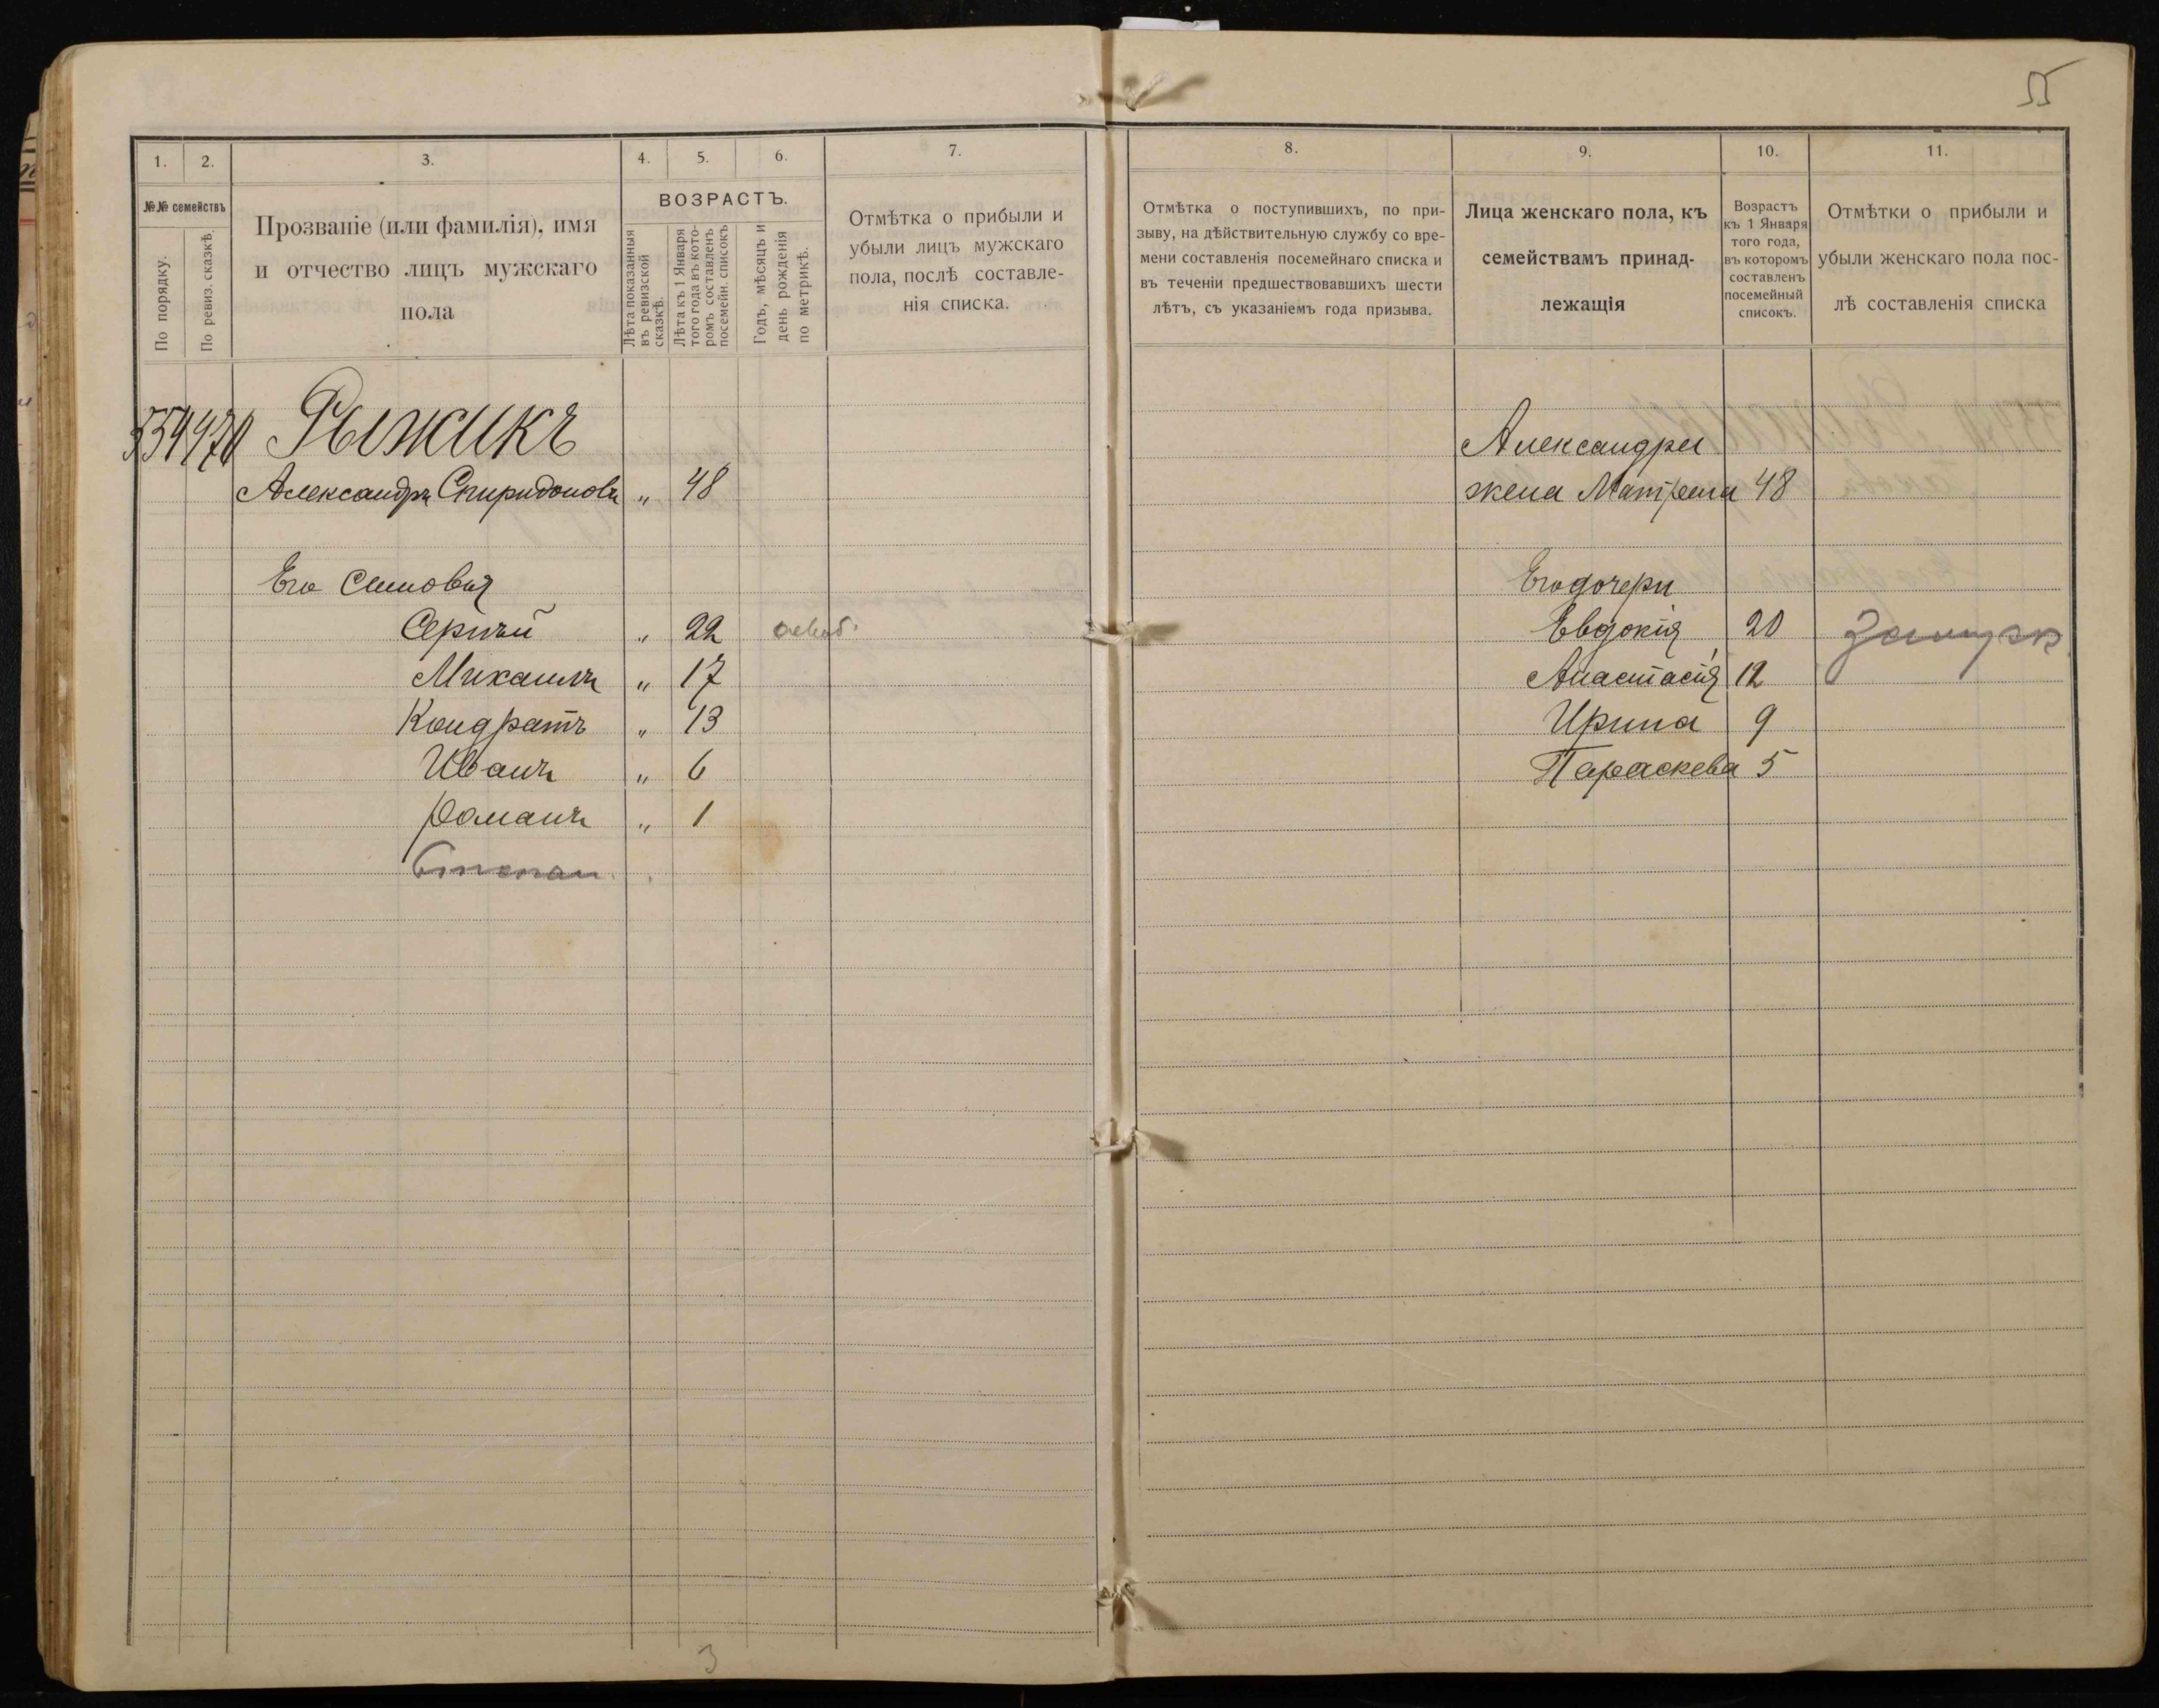 55
1. 2. 3. 4. 5. 6. 7.
№№ семействъ
По порядку.
По ревиз. сказкѣ.
Прозваніе (или фамилія), имя
и отчество лицъ мужскаго
пола
ВОЗРАСТЪ.
Лѣта показанныя
въ ревизской
сказкѣ.
Лѣта къ 1 Января
того года въ кото-
ромъ составленъ
посемейн. списокъ
Годъ, мѣсяцъ и
день рожденія
по метрикѣ.
Отмѣтка о прибыли и
убыли лицъ мужскаго
пола, послѣ составле-
нія списка.
Рыжикъ
Александръ Спиридоновъ „ 48
Его Сыновья
Сергѣй „ 22
Михаилъ „ 17
Кондратъ „ 13
Иванъ „ 6
Романъ „ 1
Степан
3
8. 9. 10. 11.
Отмѣтка о поступившихъ, по при-
зыву, на дѣйствительную службу со вре-
мени составленія посемейнаго списка и
въ теченіи предшествовавшихъ шести
лѣтъ, съ указаніемъ года призыва.
Лица женскаго пола, къ
семействамъ принад-
лежащія
Возрастъ
къ 1 Января
того года,
въ которомъ
составленъ
посемейный
списокъ.
Отмѣтки о прибыли и
убыли женскаго пола пос-
лѣ составленія списка
Александра
жена Матрена 48
Его дочери
Евдокія 20 Замуж
Анастасія 12
Ирина 9
Параскева 5